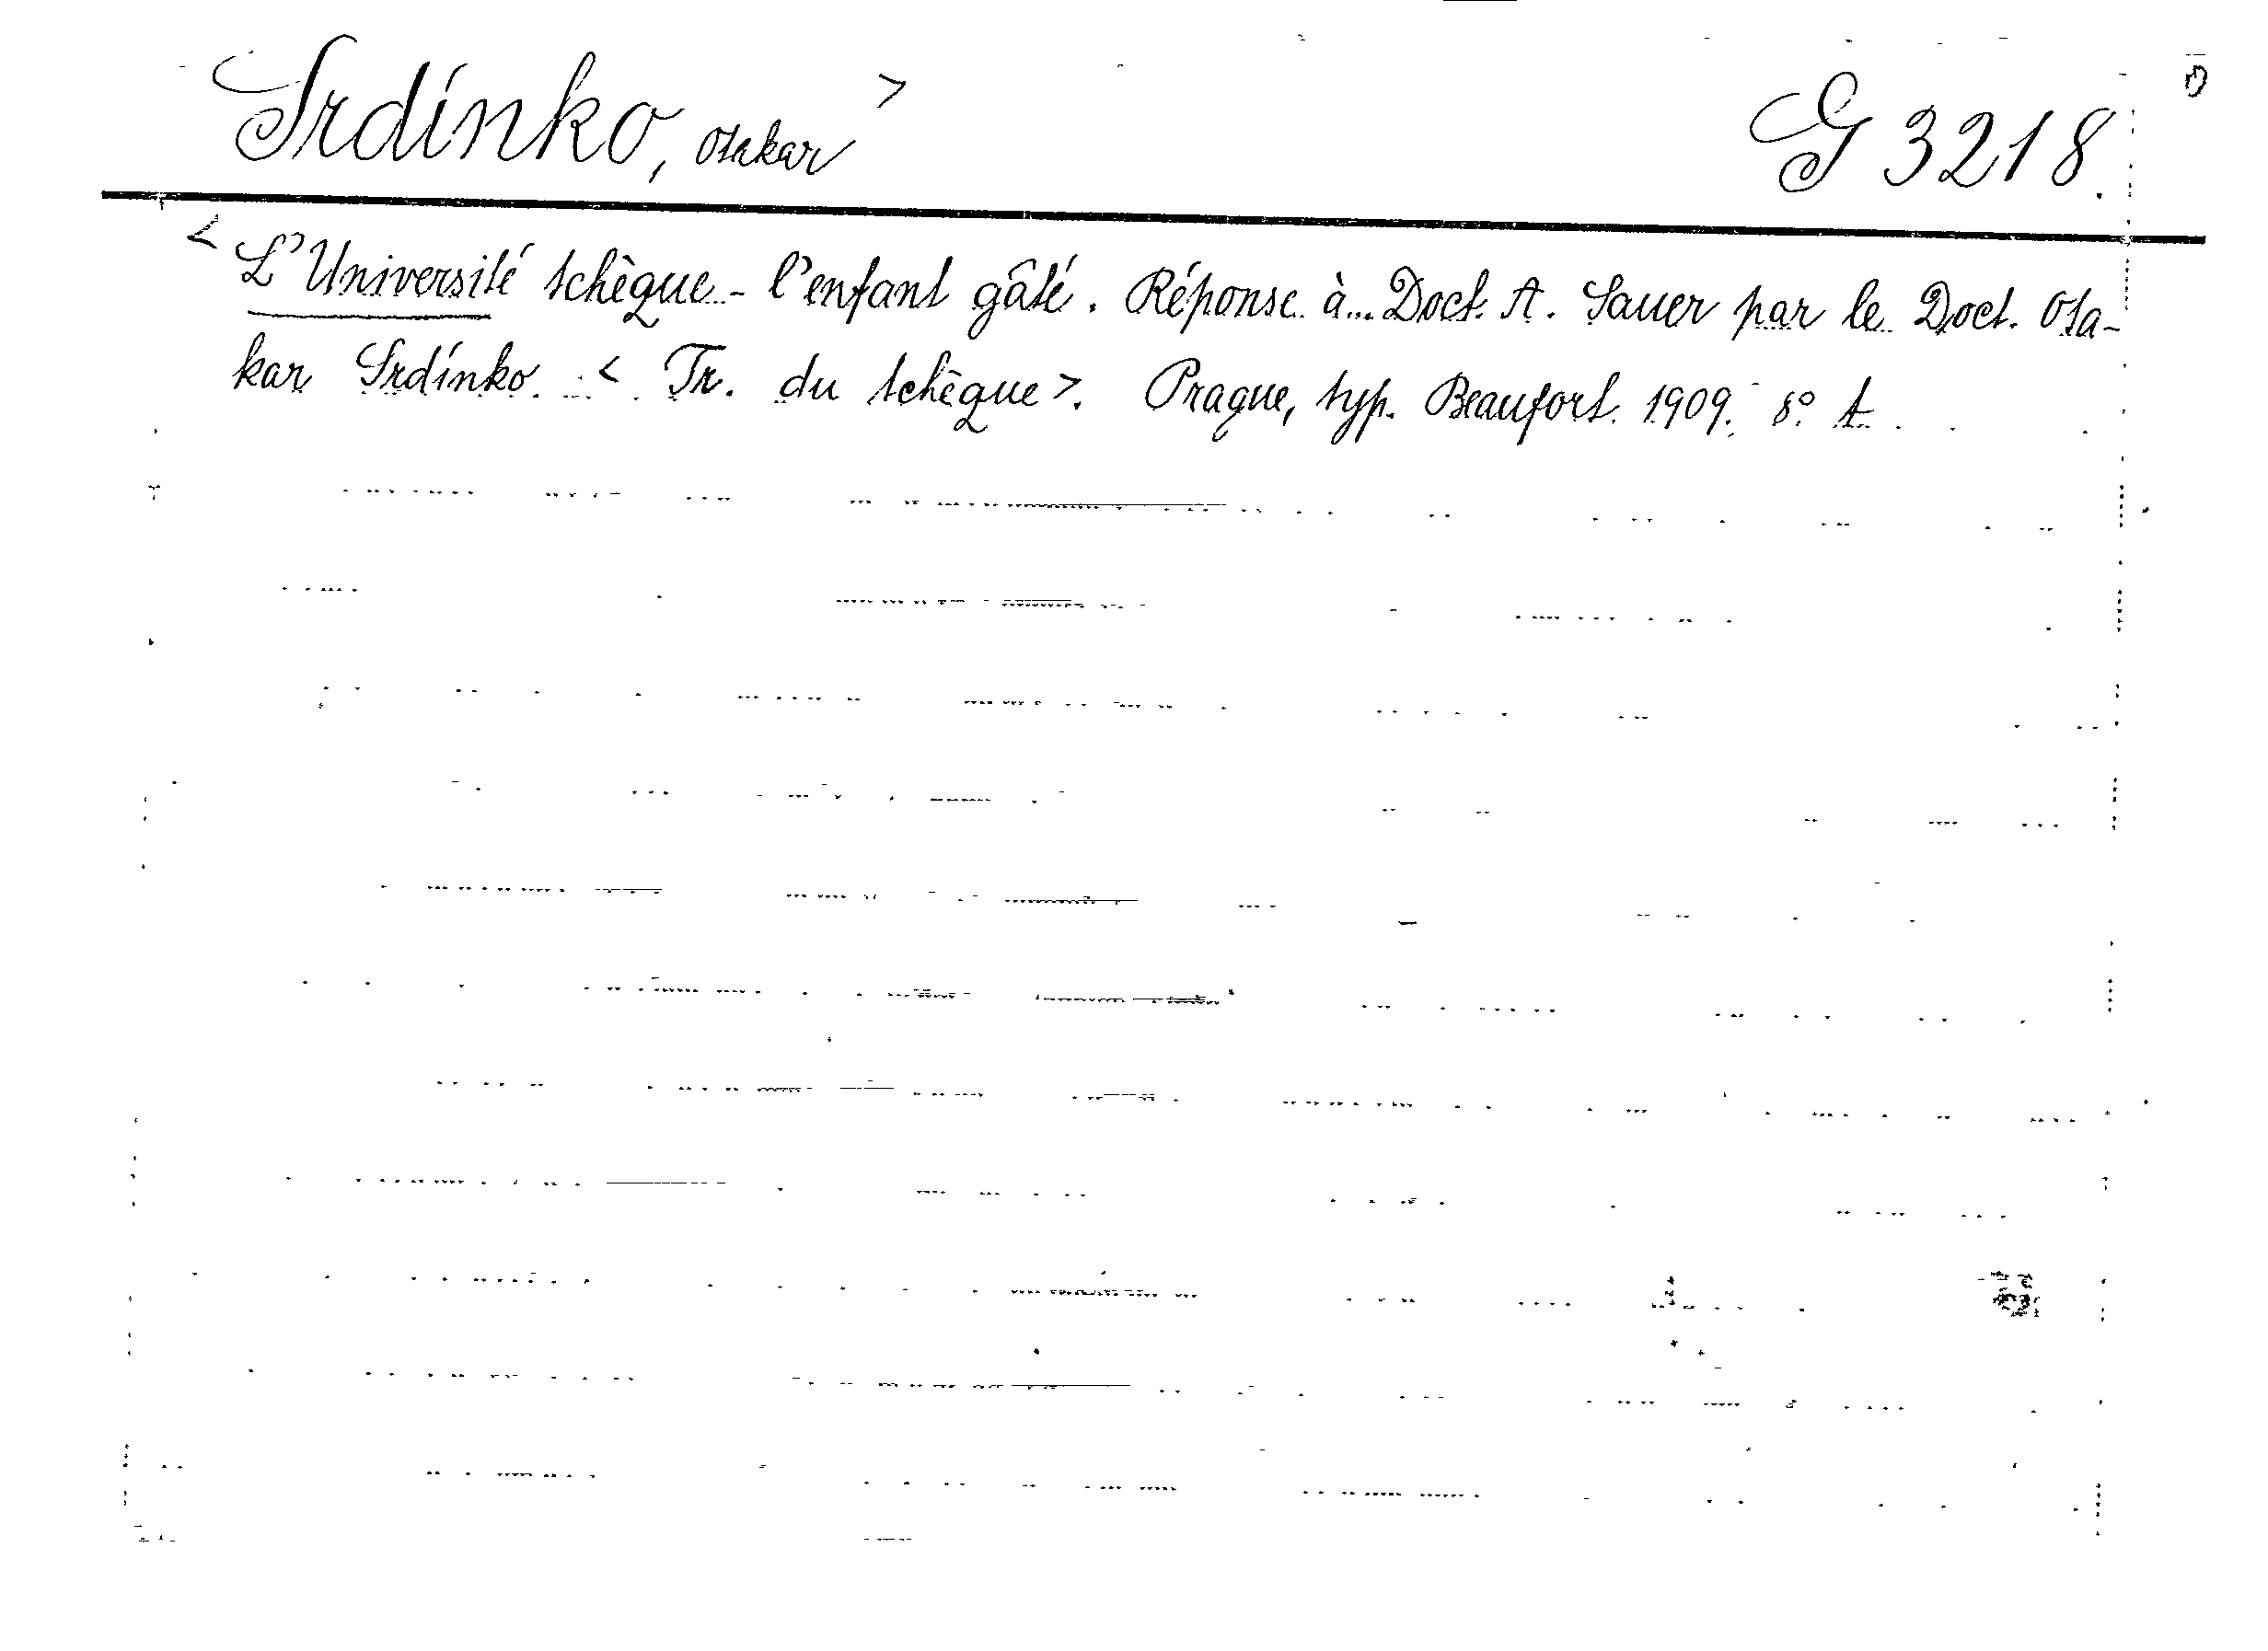 Srdínko, Otakar > G 3218.
< L'Université tchèque - l'enfant gâté. Réponse à... Doct. A. Sauer par le Doct. Ota-
kar Srdínko. < Tr. du tchèque >. Prague, typ. Beaufort. 1909. 8º